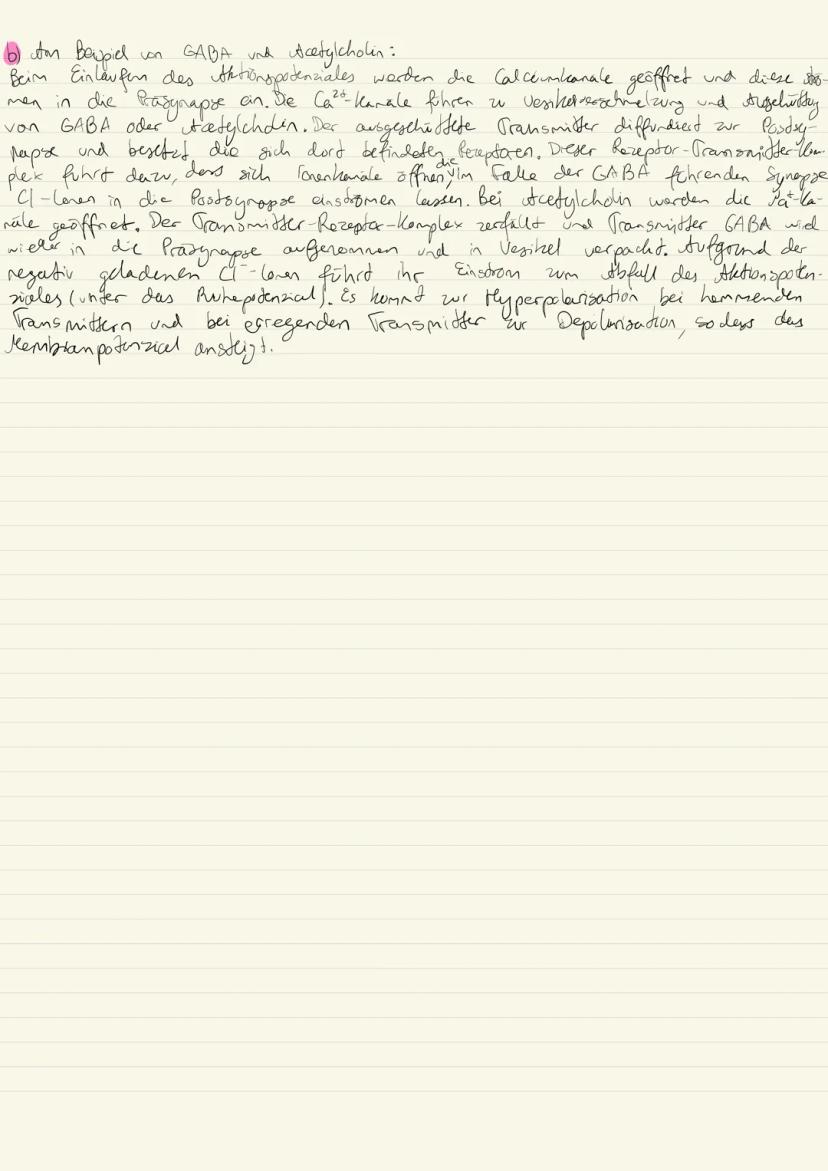 b) Am Beispiel von GABA und Acetylcholin:
Beim Einlaufen des Aktionspotenziales werden die Calciumkanäle geöffnet und diese strö-
men in die Präsynapse ein. Die Ca²⁺-Kanäle führen zu Vesikelverschmelzung und Ausschüttung
von GABA oder Acetylcholin. Der ausgeschüttete Transmitter diffundiert zur Postsy-
napse und besetzt, die sich dort befindeten Rezeptoren. Dieser Rezeptor-Transmitter-Kom-
plex führt dazu, dass sich Ionenkanäle öffnen, die im Falle der GABA führenden Synapse
Cl-Ionen in die Postsynapse einströmen lassen. Bei Acetylcholin werden die Na⁺-Ka-
näle geöffnet. Der Transmitter-Rezeptor-Komplex zerfällt und Transmitter GABA wird
wieder in die Präsynapse aufgenommen und in Vesikel verpackt. Aufgrund der
negativ geladenen Cl⁻-Ionen führt ihr Einstrom zum Abfall des Aktionspoten-
ziales (unter das Ruhepotenzial). Es kommt zur Hyperpolarisation bei hemmenden
Transmittern und bei erregenden Transmitter zur Depolarisation, sodass das
Membranpotenzial ansteigt.